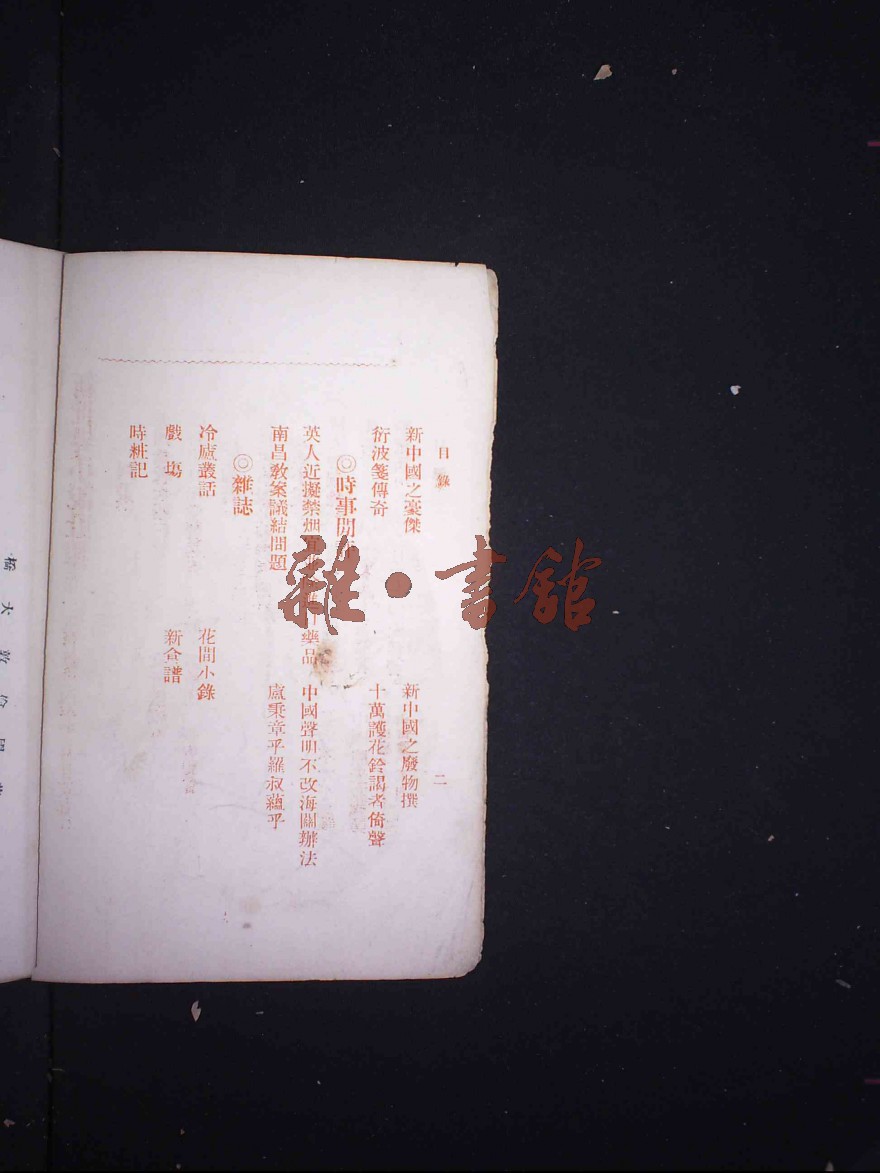 目錄
二
新中國之豪傑 新中國之廢物撰
衍波箋傳奇 十萬護花鈴謁者倚聲
◎時事
英人近擬禁烟 藥品 中國聲明不改海關辦法
南昌教案議結問題 盧秉章乎羅叔蘊乎
◎雜誌
冷廬叢話 花間小錄
戲塲 新合譜
時粃記
雜·書舘